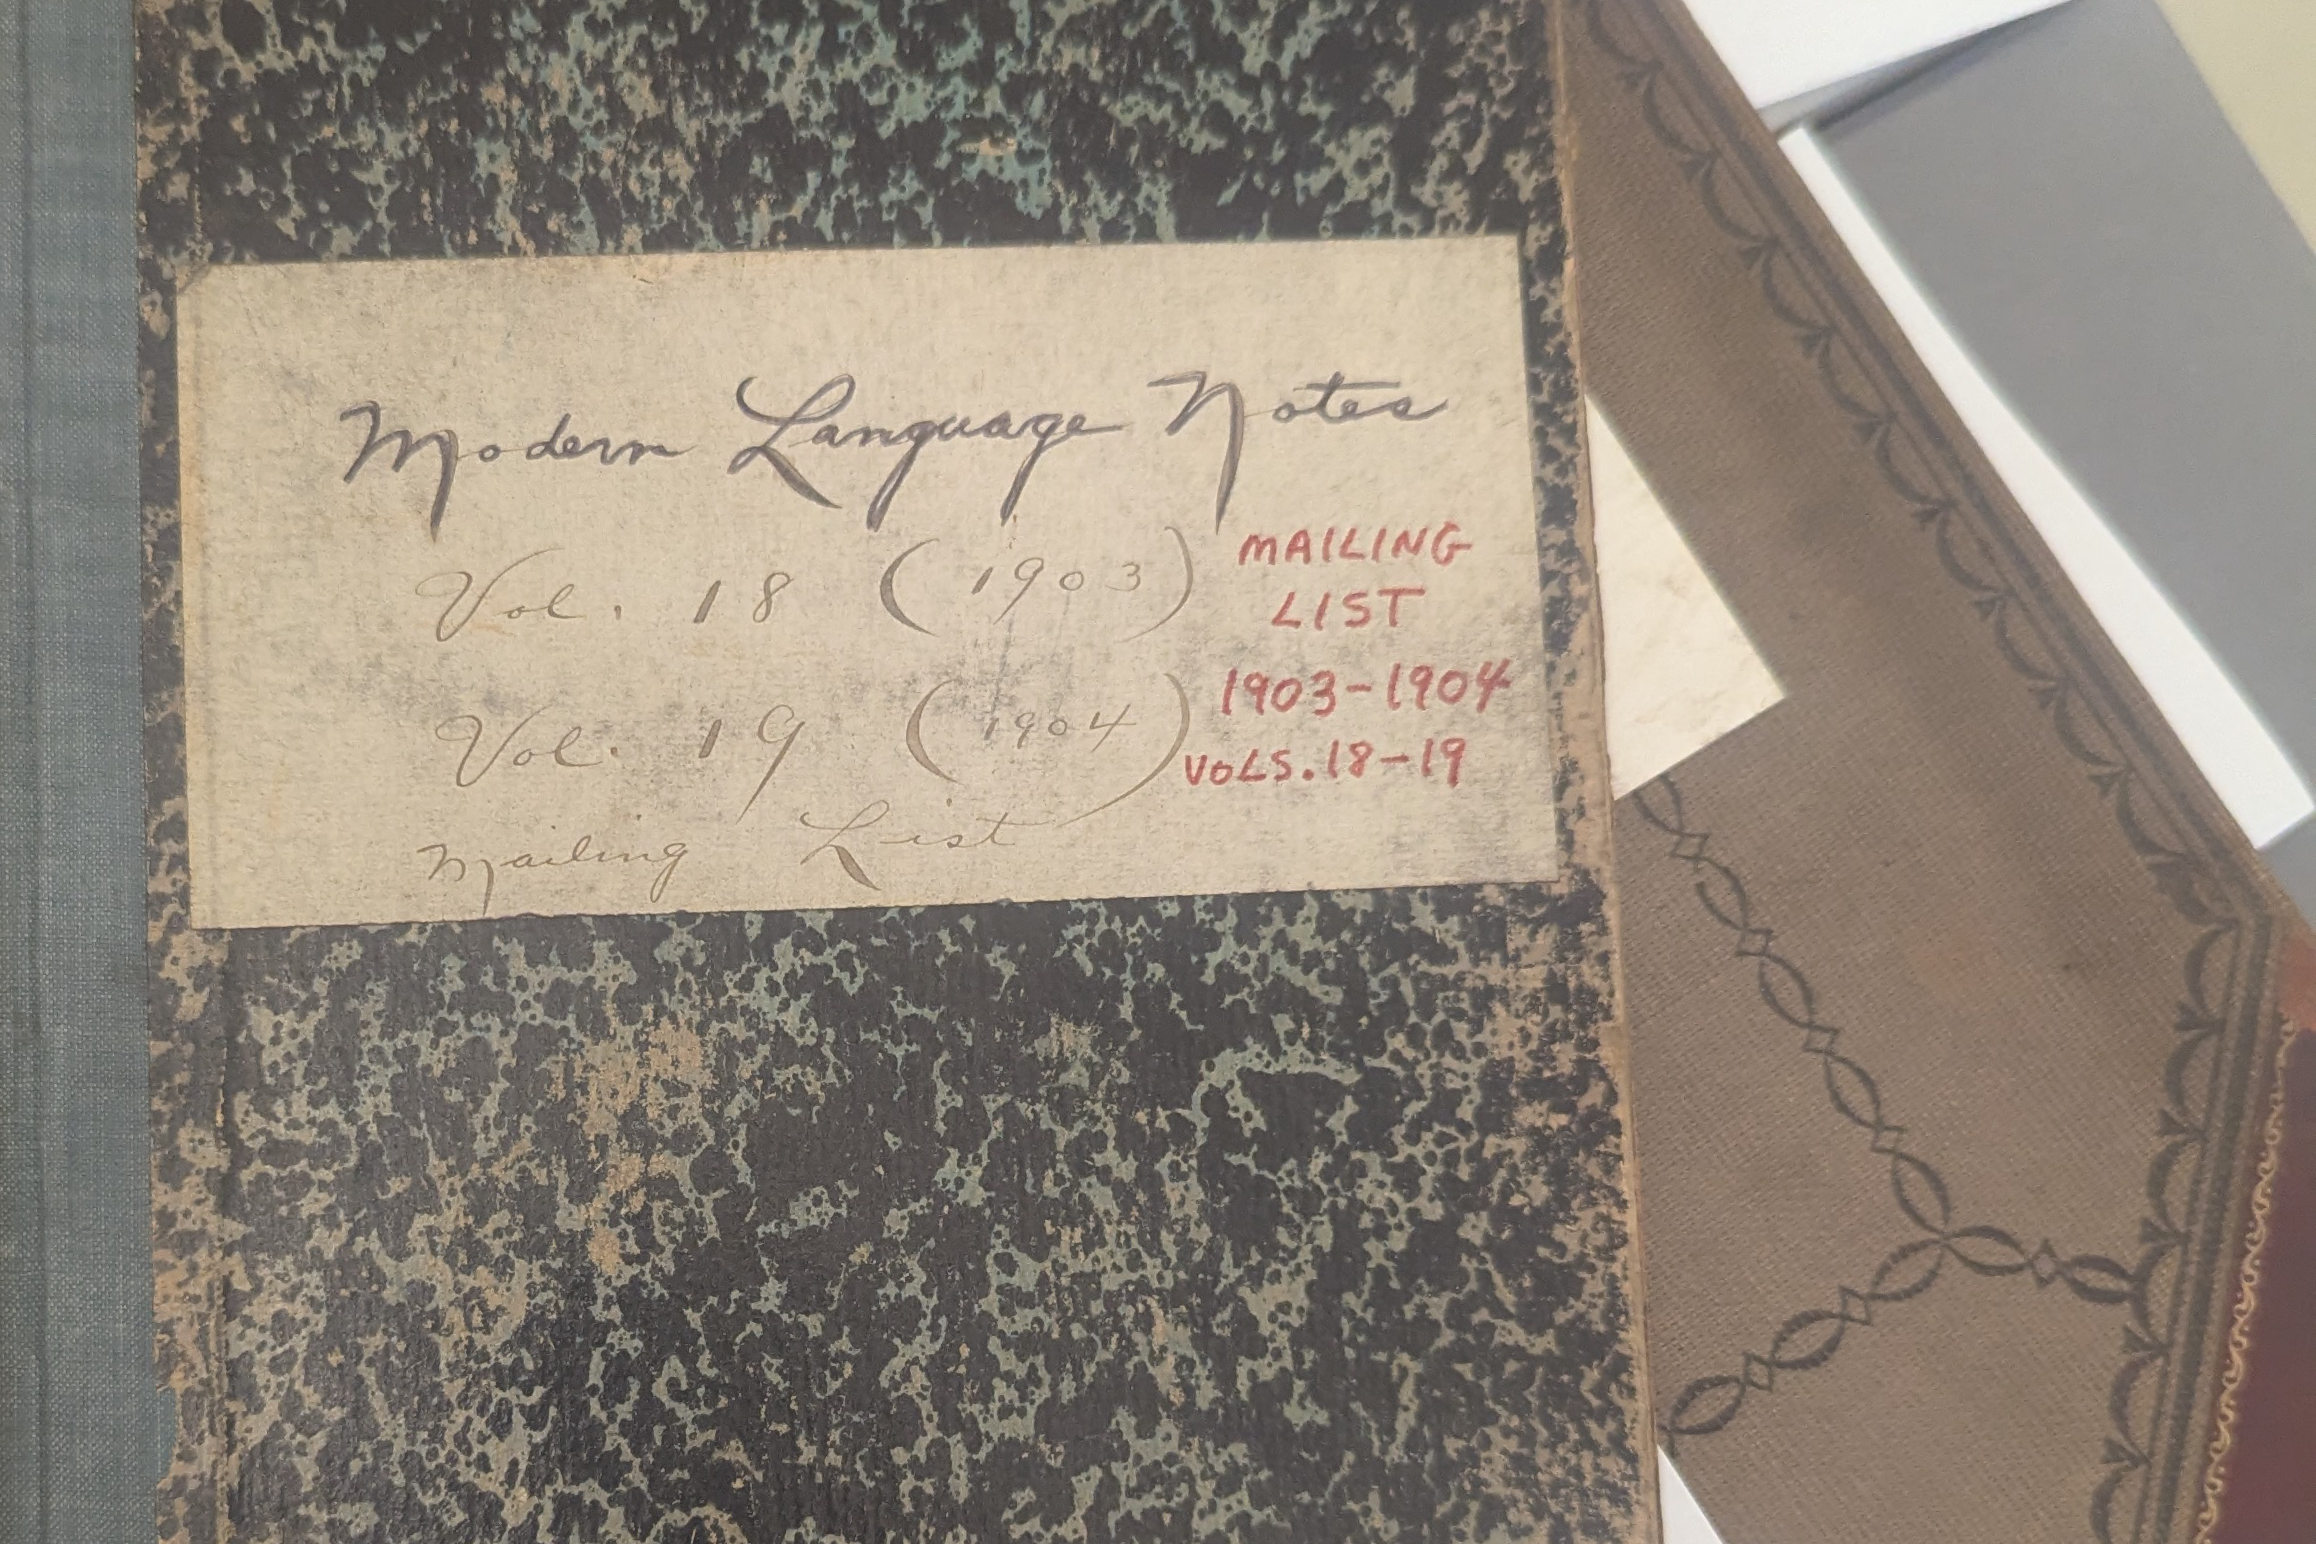 Modern Language Notes
Vol. 18 (1903)
Vol. 19 (1904)
Mailing List
MAILING
LIST
1903-1904
VOLS. 18-19